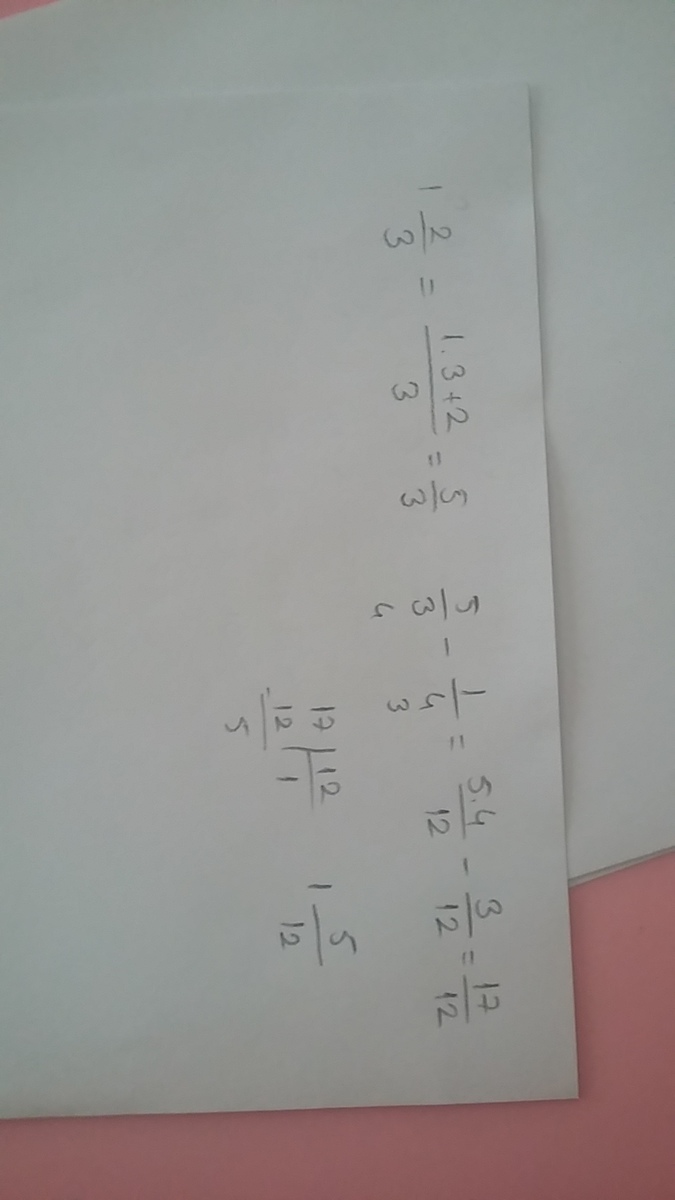 1 2/3 = (1.3+2)/3 = 5/3
5/3 - 1/4 = 5.4/12 - 3/12 = 17/12
4 3
17 | 12
-12 | 1
5
1 5/12